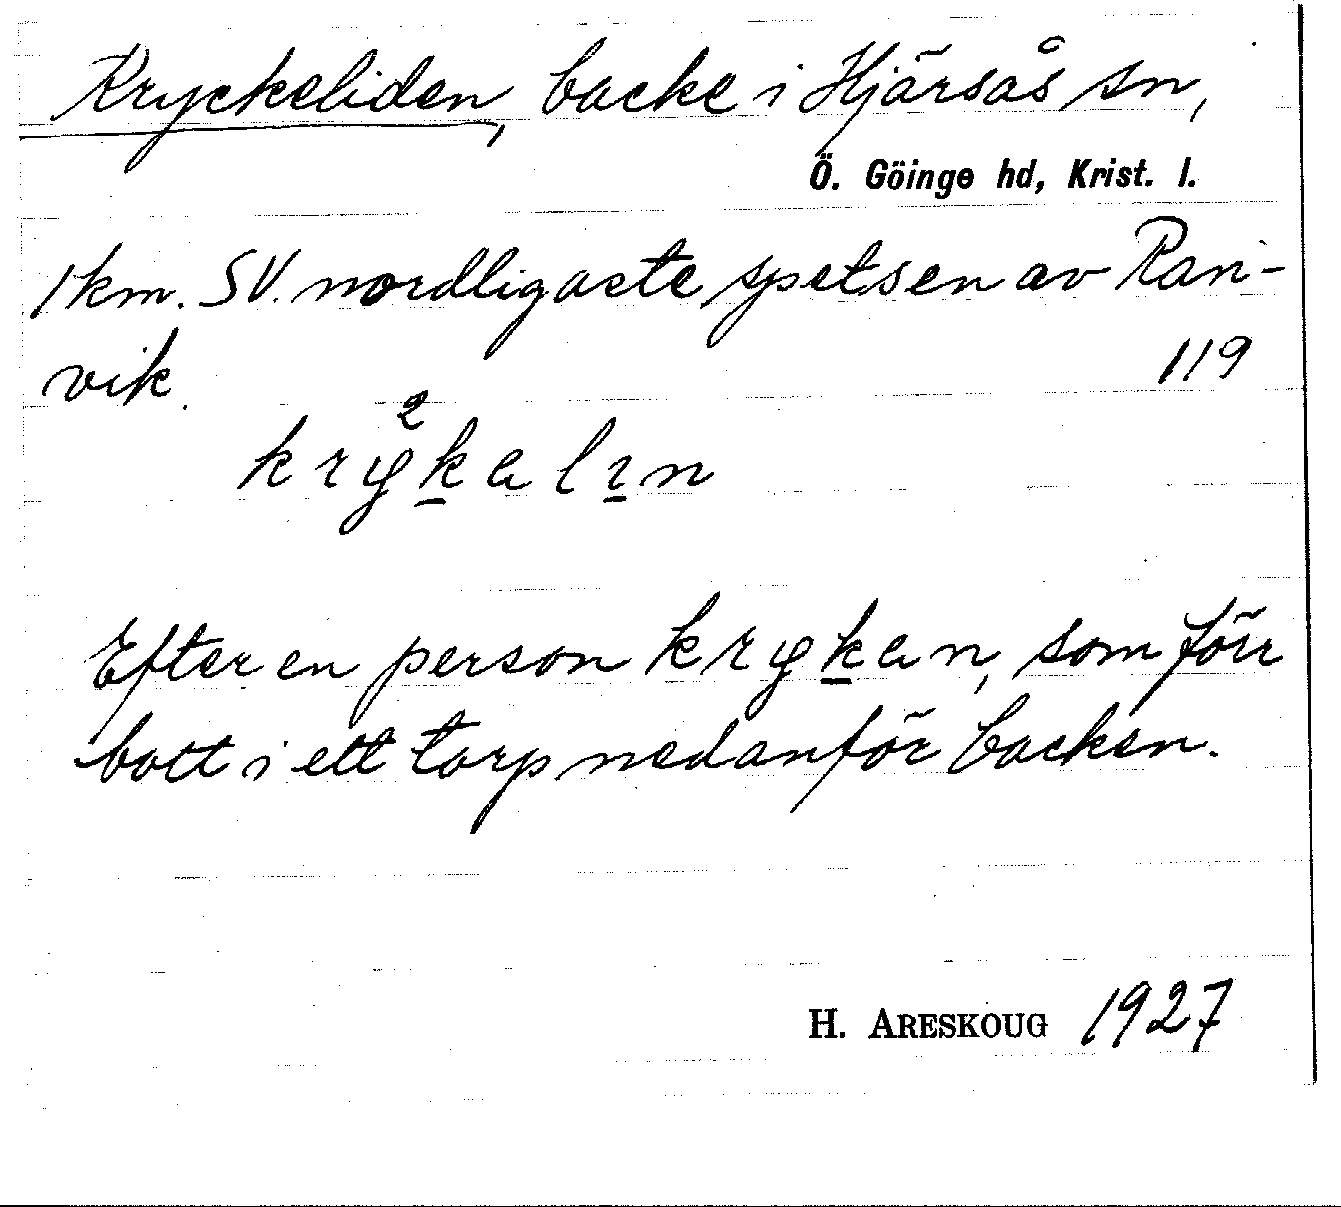 Kryckeliden, backe i Hjärsås sn,
Ö. Göinge hd, Krist. l.
1 km. SV. nordligaste spetsen av Ran-
vik.
119
krykalin
Efter en person krykan, som förr
bott i ett torp nedanför backen.
H. ARESKOUG 1927